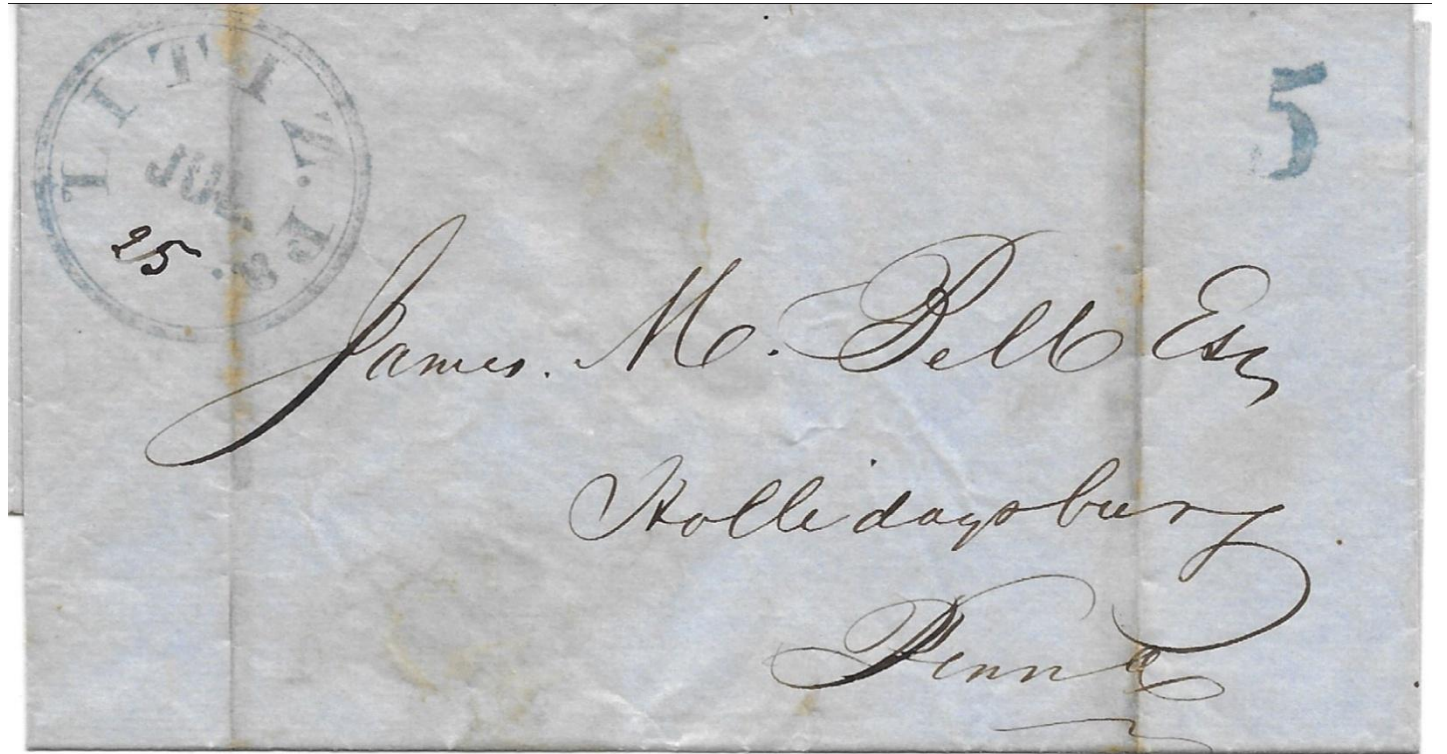 LITIZ. Pa.
JUL
25
5
James. M. Bell Esq
Hollidaysburg
Penna